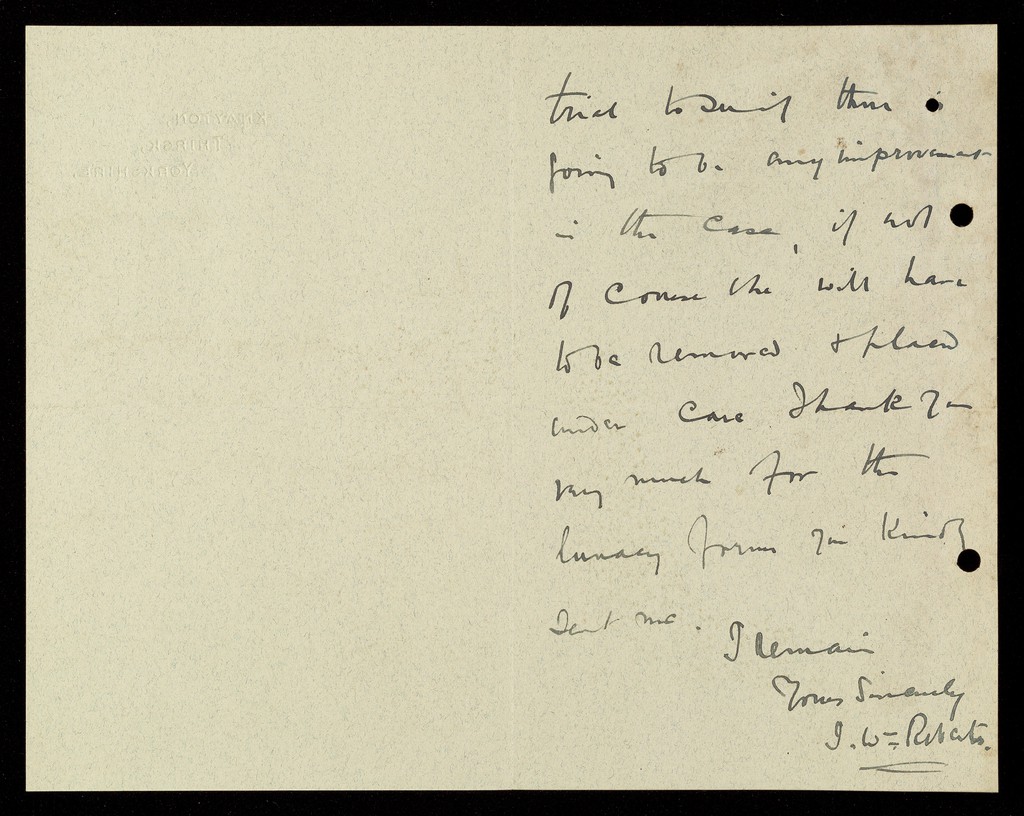 KNAYTON,
THIRSK,
YORKSHIRE.
trial to see if there is
going to be any improvement
in the case, if not
of course she will have
to be removed & placed
under care Thank you
very much for the
lunacy forms you kindly
sent me.
I remain
Yours Sincerely
J. Wm Roberts.